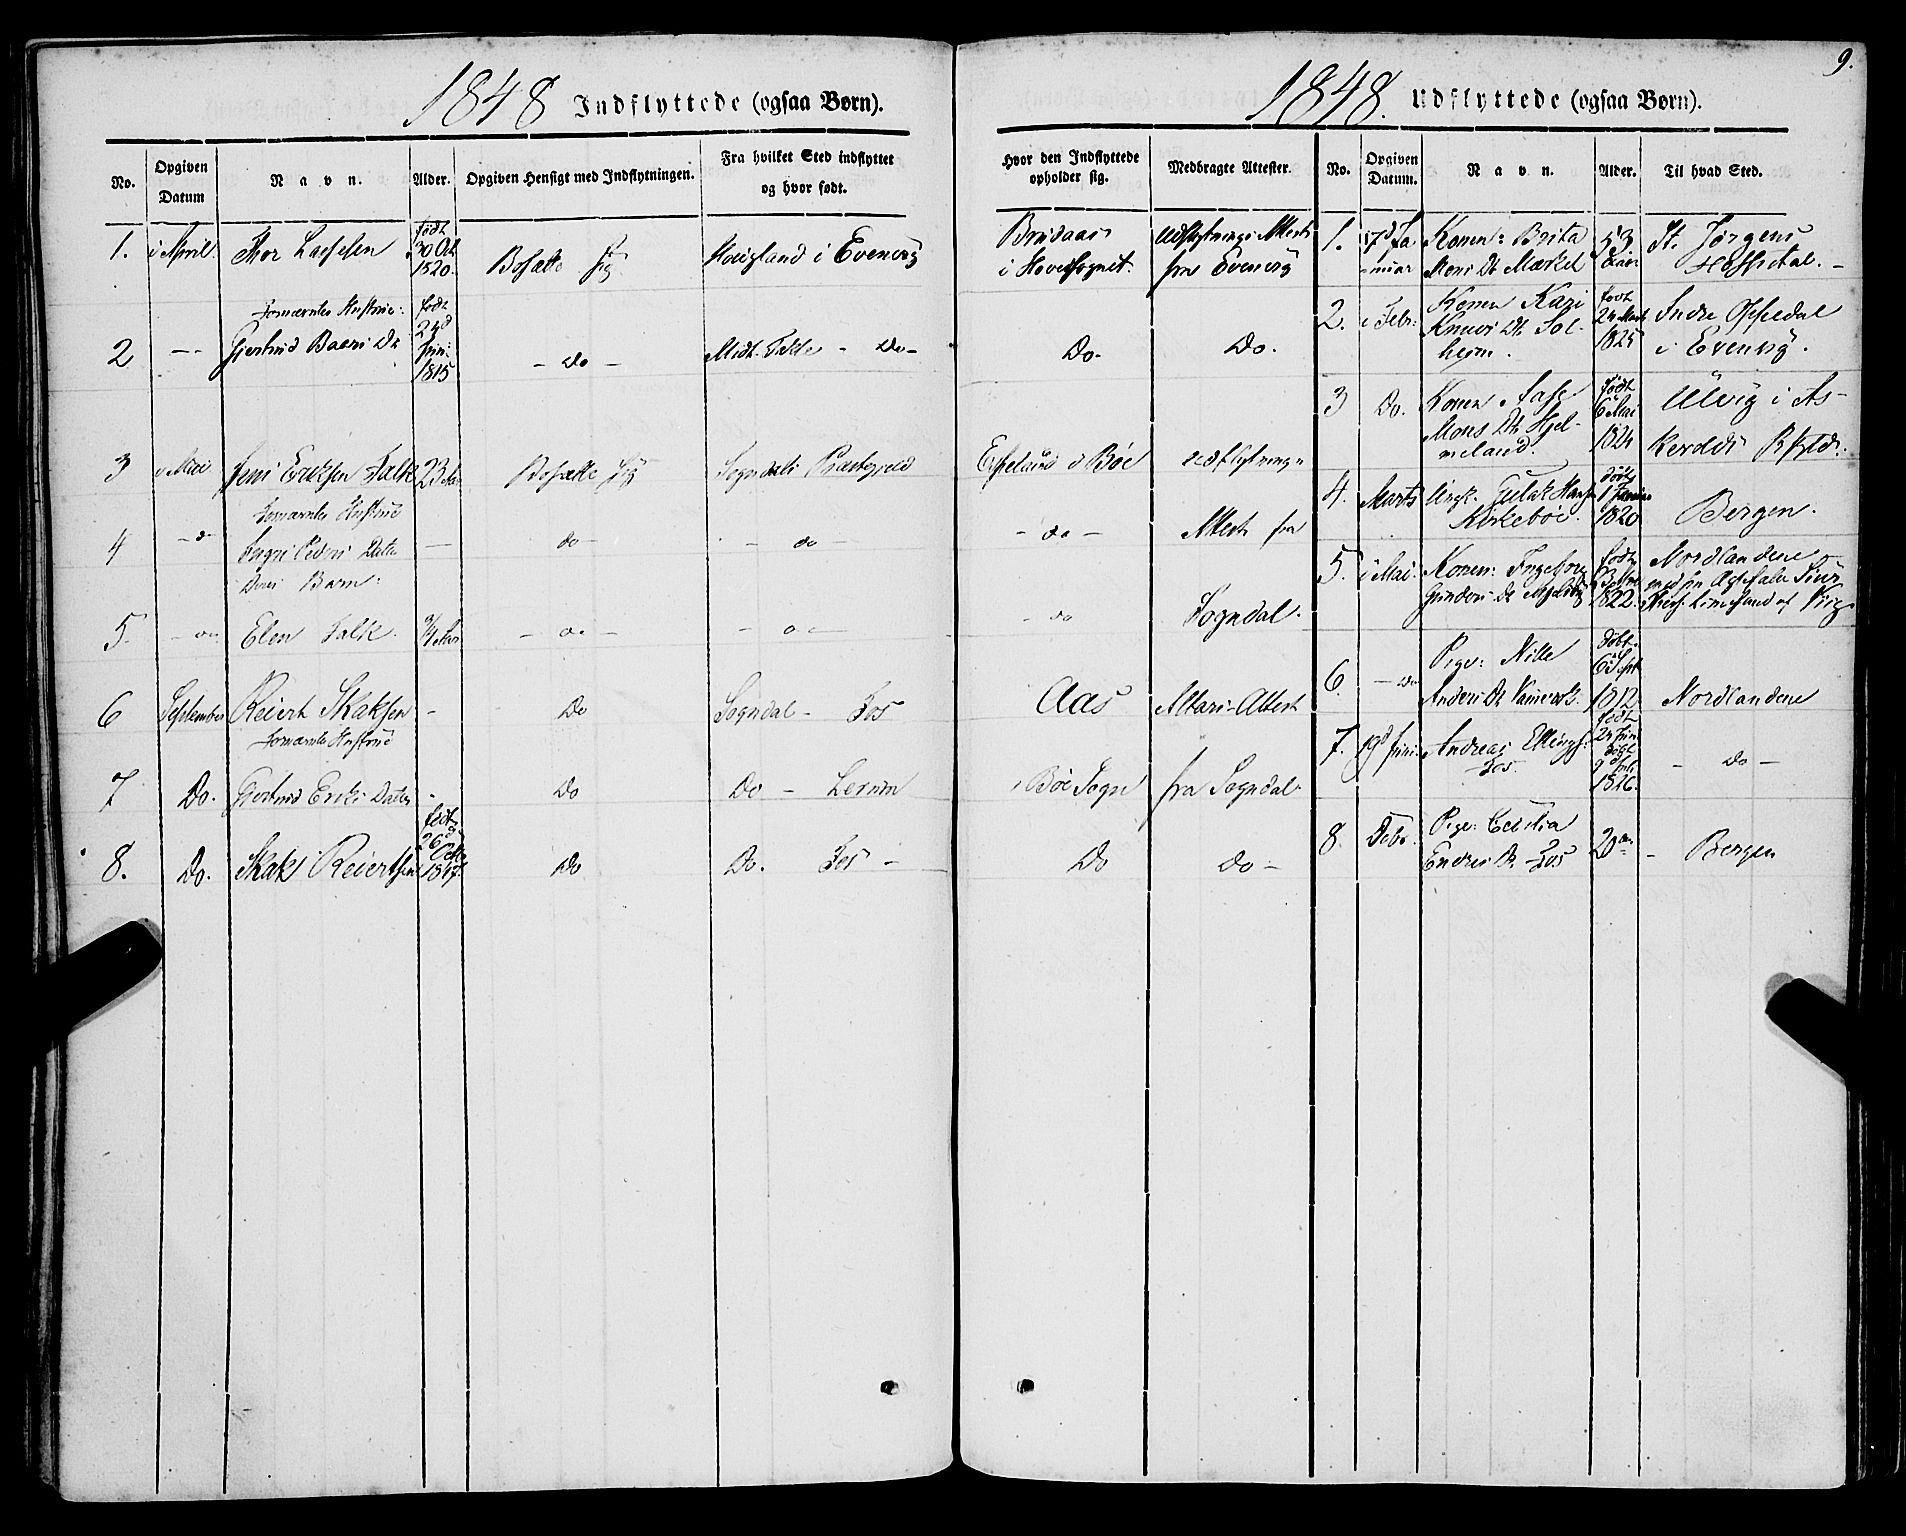 9.
1848 Indflyttede (ogsaa Børn).
No.
Opgiven Datum
Navn.
Alder.
Opgiven Hensigt med Indflytningen.
Fra hvilket Sted indflyttet og hvor født.
Hvor den Indflyttede opholder sig.
Medbragte Attester.
1. i April Thor Lassesen født 30 Ok 1820. Bosætte sig Hougland i Evenvig Brudaas i Hovedsognet. Udflytnings Attest fra Evenvig
Fornævntes Hustrue:
2 -- Gjertrud Baars Dt født 24d Juni 1815 - Do - Midt- - Do - Do- Do.
3 i Mai Jens Eriksen Falk 23 Aar Bosætte sig Sogndals Præstegjeld i Böe Udflytnings
Fornævntes Hustrue
4 - d Peders Datter - do- - do - - do - Attest fra
Deres Barn:
5. - do Elen Falk. 3/4 Aar - do - - do - - do Sogndal.
6 September Reiert Skaksen - Do Sogndal - Fos Aas Altars-Attest
Fornævntes Hustrue
7 Do. Gjertrud Eriks Datter - Do Do - Lerum i Böe Sogn fra Sogndal-
8. Do. Skak Reiertsen født 26d Octb 1847. Do Do. Fos - Do Do -
1848. Udflyttede (ogsaa Børn).
No.
Opgiven Datum.
Navn.
Alder.
Til hvad Sted.
1. 17d Januar Konen: Brita Mons Dt Mækel 53 Aar St. Jørgens Hospital. -
2. i Febr: Konen Kari Knuds Dt Solheim. født 24 Marts 1825 Indre Oppedal i Evenvig.
3 Do. Konen Aase Mons Dt Hjelmeland. født 6 Mai 1824 Ulvig i Askevolds Pgjld.
4. Marts Ungk. Gulak Hans Kirkebøe. født 1 Januar 1820 Bergen.
5. i Mai. Konen: Ingeborg Gunders Dt født 1822. Nordlandene med sin Ægtefælle
6. - Do Pige: Nille Anders Dt født 6d Sept 1812 Nordlandene
7. 19d Juni. Andreas Ellings: Fos. født 24 Juni døbt 9d Juli 1826. - Do -
8. Pige: Cecilia Endres Dt Fos 20 Aar - Bergen